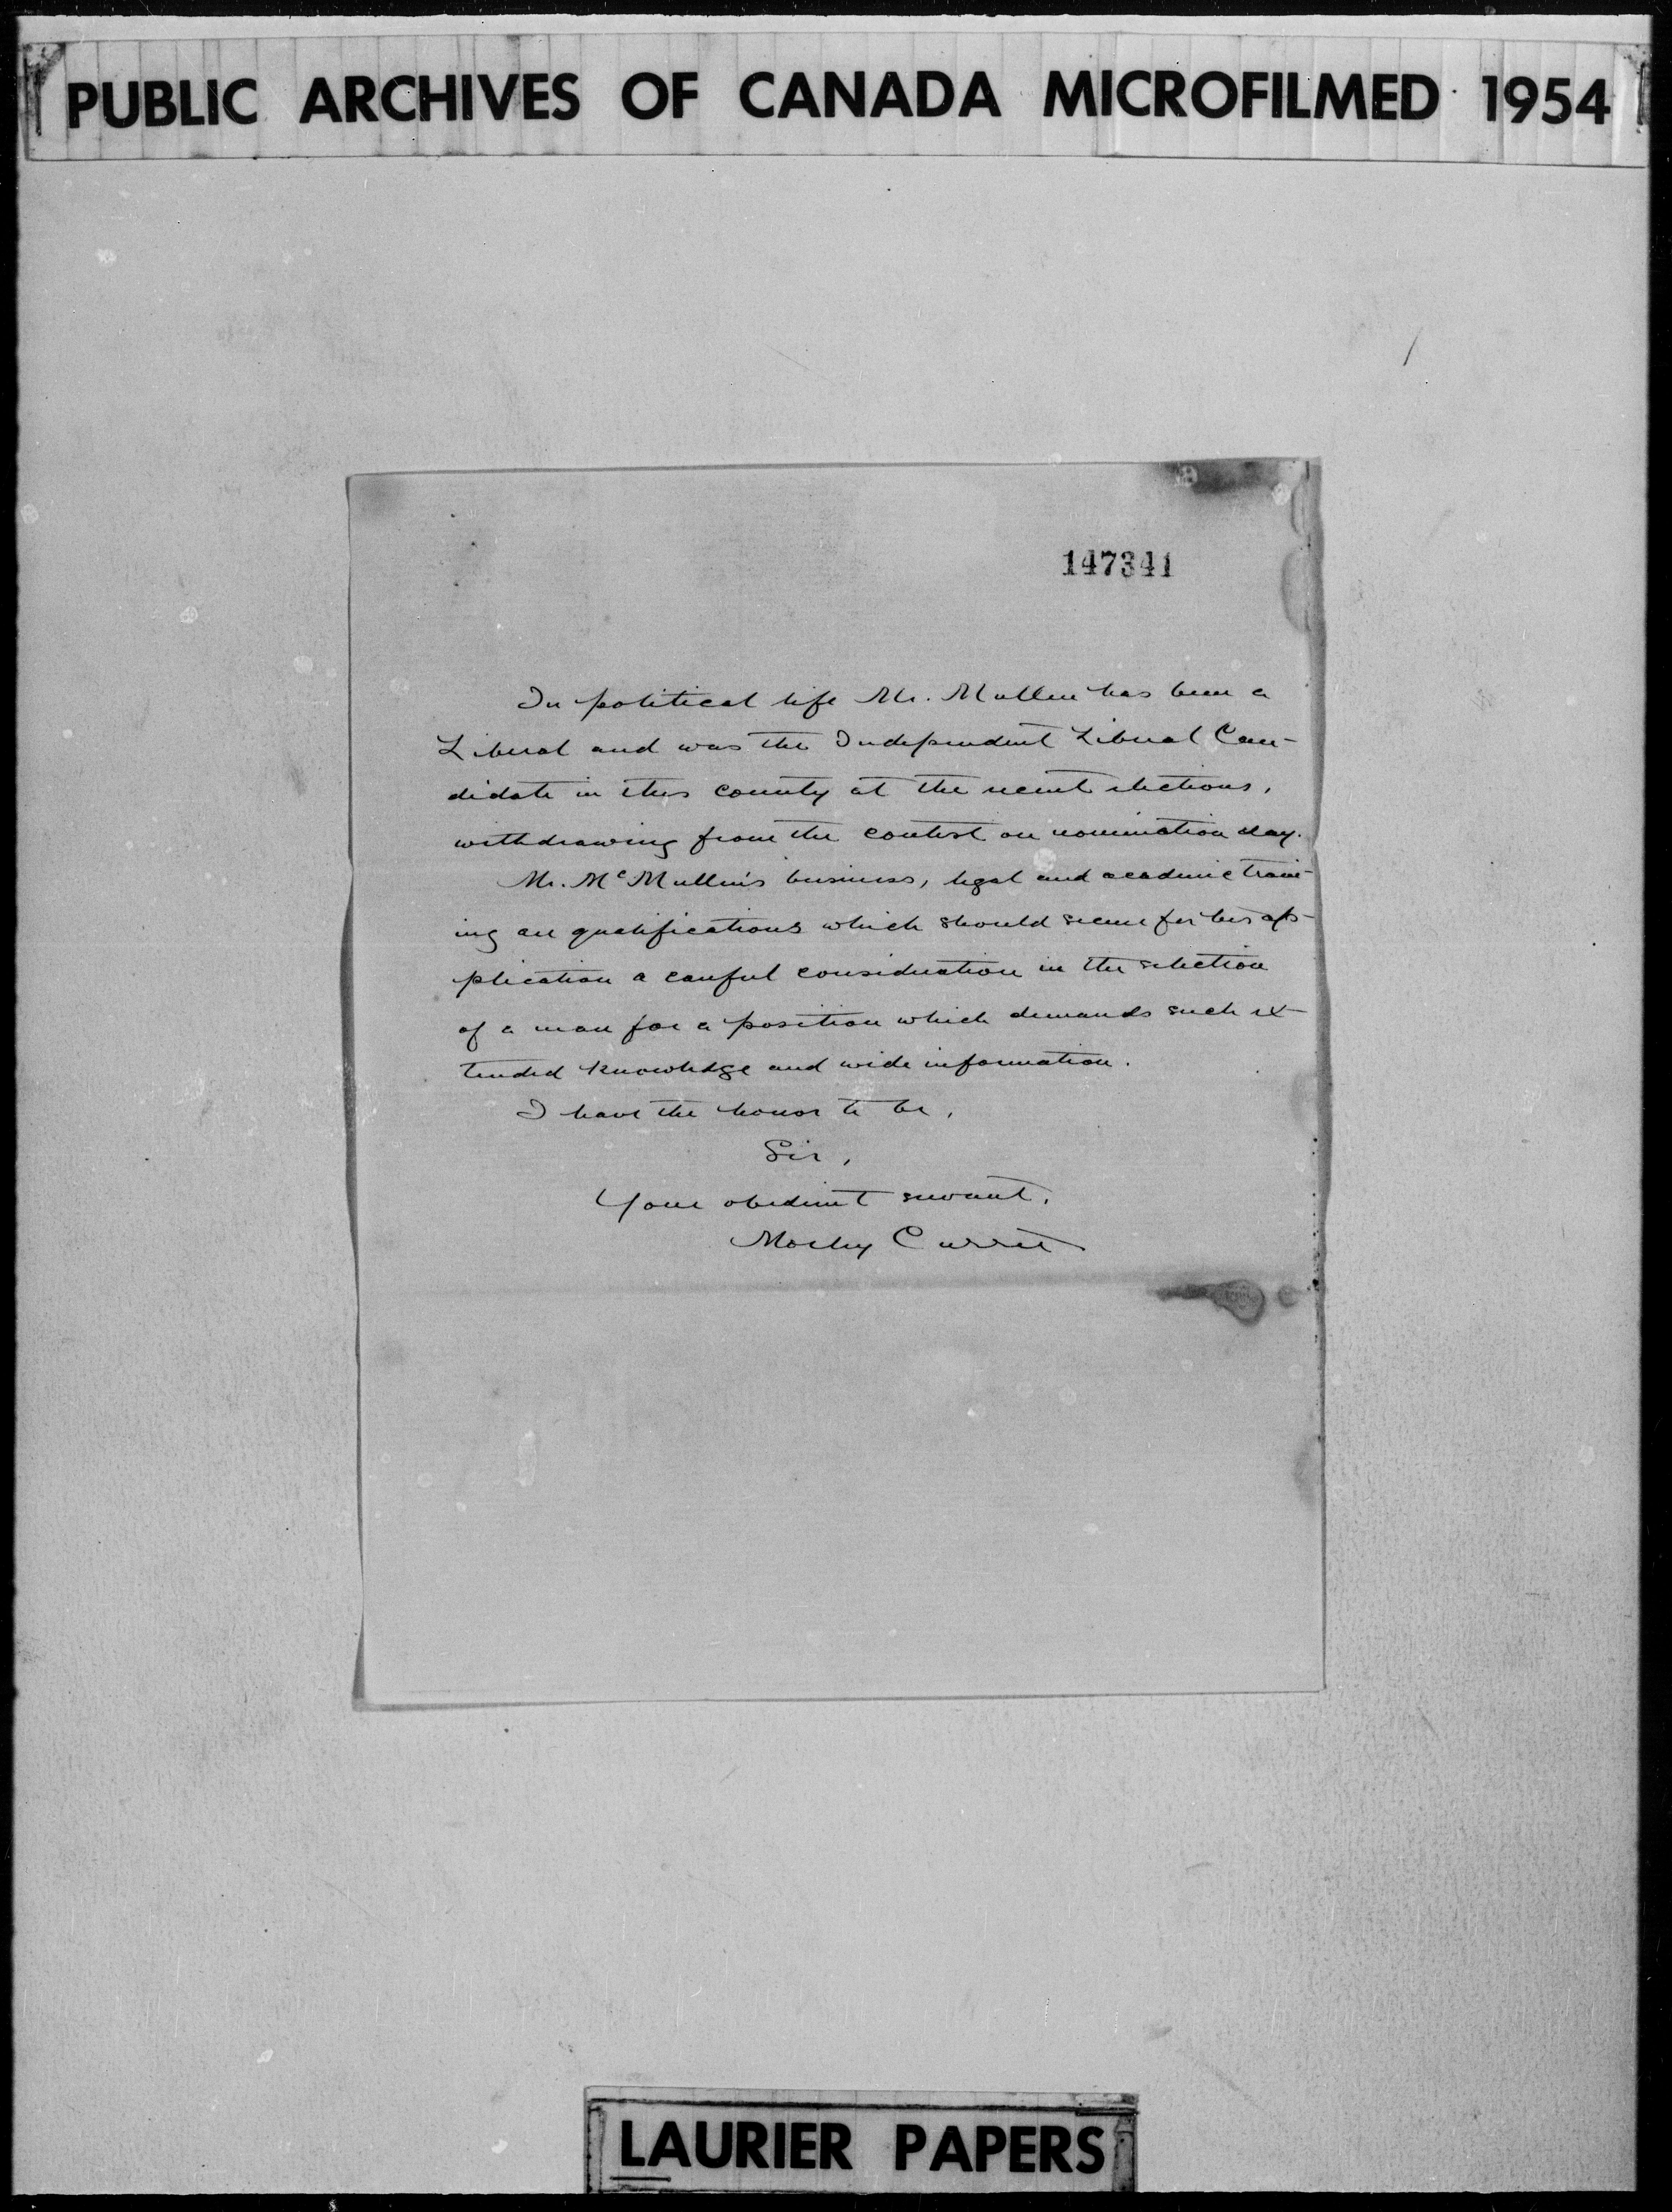 PUBLIC ARCHIVES OF CANADA MICROFILMED 1954
147341
In political life Mr. Mullen has been a
Liberal and was the Independent Liberal Can-
didate in this county at the recent elections,
withdrawing from the contest on nomination day.
Mr. McMullen's business, legal and academic train-
ing are qualifications which should secure for his ap-
plication a careful consideration in the selection
of a man for a position which demands such ex-
tended knowledge and wide information.
I have the honor to be,
Sir,
Your obedient servant,
Morley Currie
LAURIER PAPERS